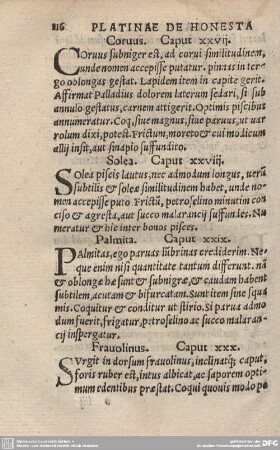 216 PLATINAE DE HONESTA
Coruus. Caput xxvij.
COruus subniger est, ad corui similitudinem,
unde nomen accepisse putatur. pinnas in ter-
go oblongas gestat. Lapidem item in capite gerit.
Affirmat Palladius dolorem laterum sedari, si sub
annulo gestatus, carnem attigerit. Optimis piscibus
annumeratur. Coq, siue magnus, siue paruus, ut uar
rolum dixi, potest. Frictum, moreto & cui modicum
allij insit, aut sinapio suffundito.
Solea. Caput xxviij.
SOlea piscis lautus, nec admodum longus, uerũ
subtilis & soleæ similitudinem habet, unde no-
men accepisse puto Frictũ, petroselino minutim con
ciso & agresta, aut succo malarancij suffundes. Nu-
meratur & hic inter bonos pisces.
Palmita. Caput xxix.
PAlmitas, ego paruas lubrinas crediderim. Ne-
que enim nisi quantitate tantum differunt. nã
& oblongæ hæ sunt & subnigræ, & caudam habent
subtilem, acutam & bifurcatam. Sunt item sine squa
mis. Coquitur & conditur ut stirio. Si parua admo-
dum fuerit, frigatur, petroselino ac succo malaran-
cij inspergatur.
Frauolinus. Caput xxx.
SVrgit in dorsum frauolinus, inclinatq; caput,
foris ruber est, intus albicat, ac saporem opti-
mum edentibus præstat. Coqui quouis modo po